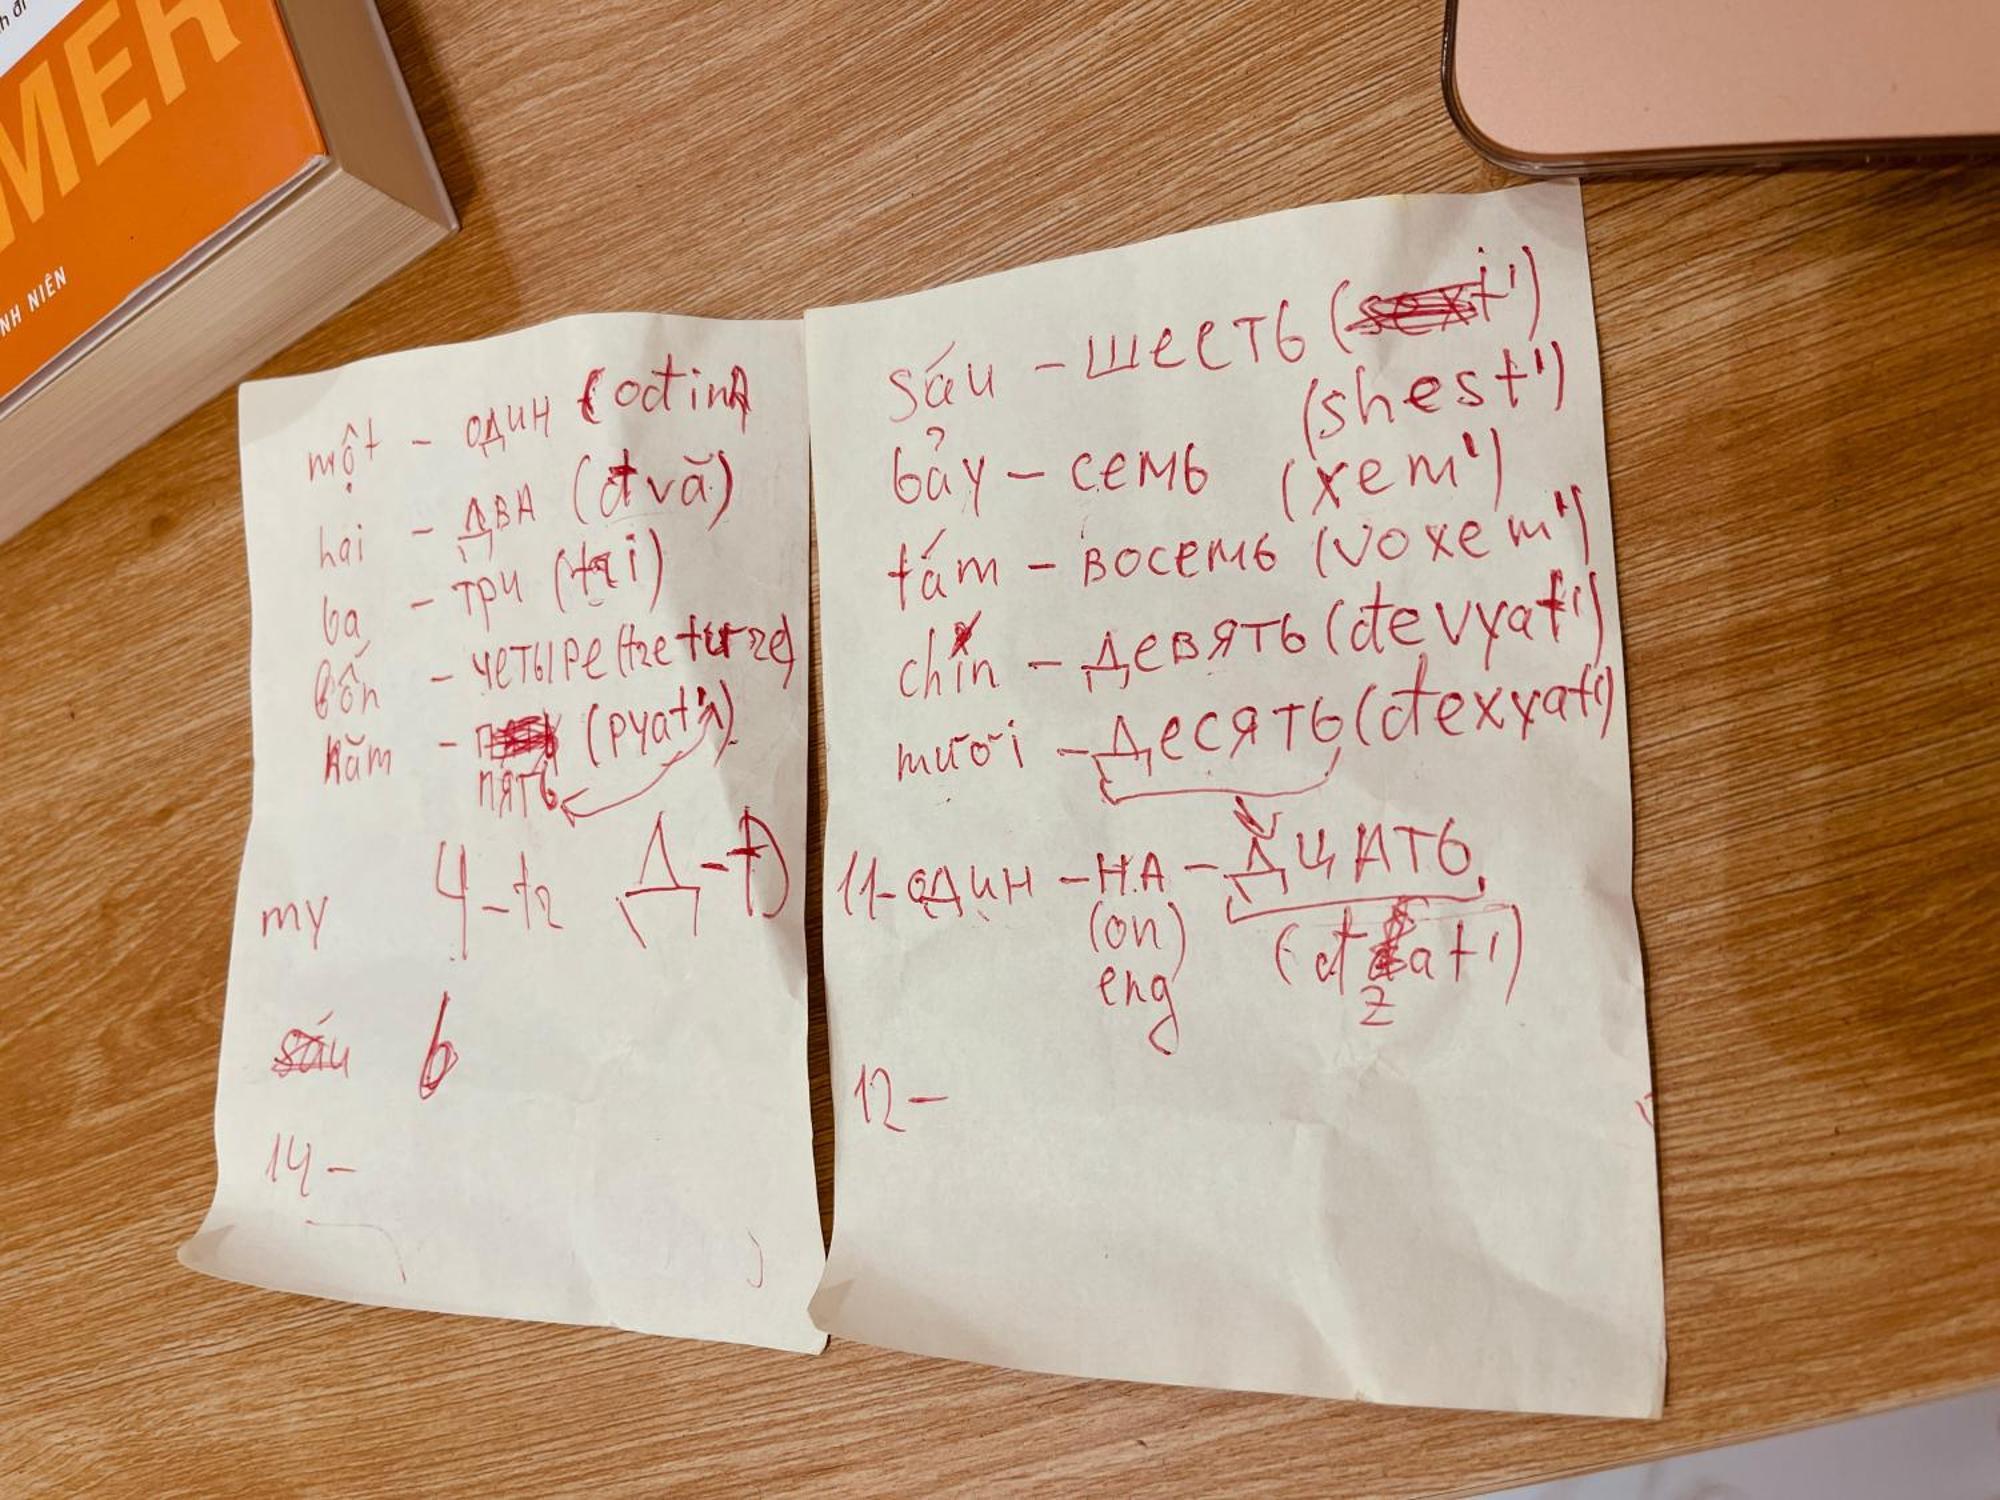 MER
NH NIÊN
một - один (ođinA
hai - ДВА (đvă)
ba - три (tri)
bốn - ЧЕТЫРЕ (
năm - (pyat'
ПЯТЬ
my Ч - tr Д - Đ
6
14 -
sáu - ШЕСТЬ (
(shest')
bảy - семь (xem')
tám - восемь (voxem')
chín - ДЕВЯТЬ (đevyat')
mười - ДЕСЯТЬ (đexyat')
11 - один - НА - ДЦАТЬ
(on) (đ at')
eng z
12 -